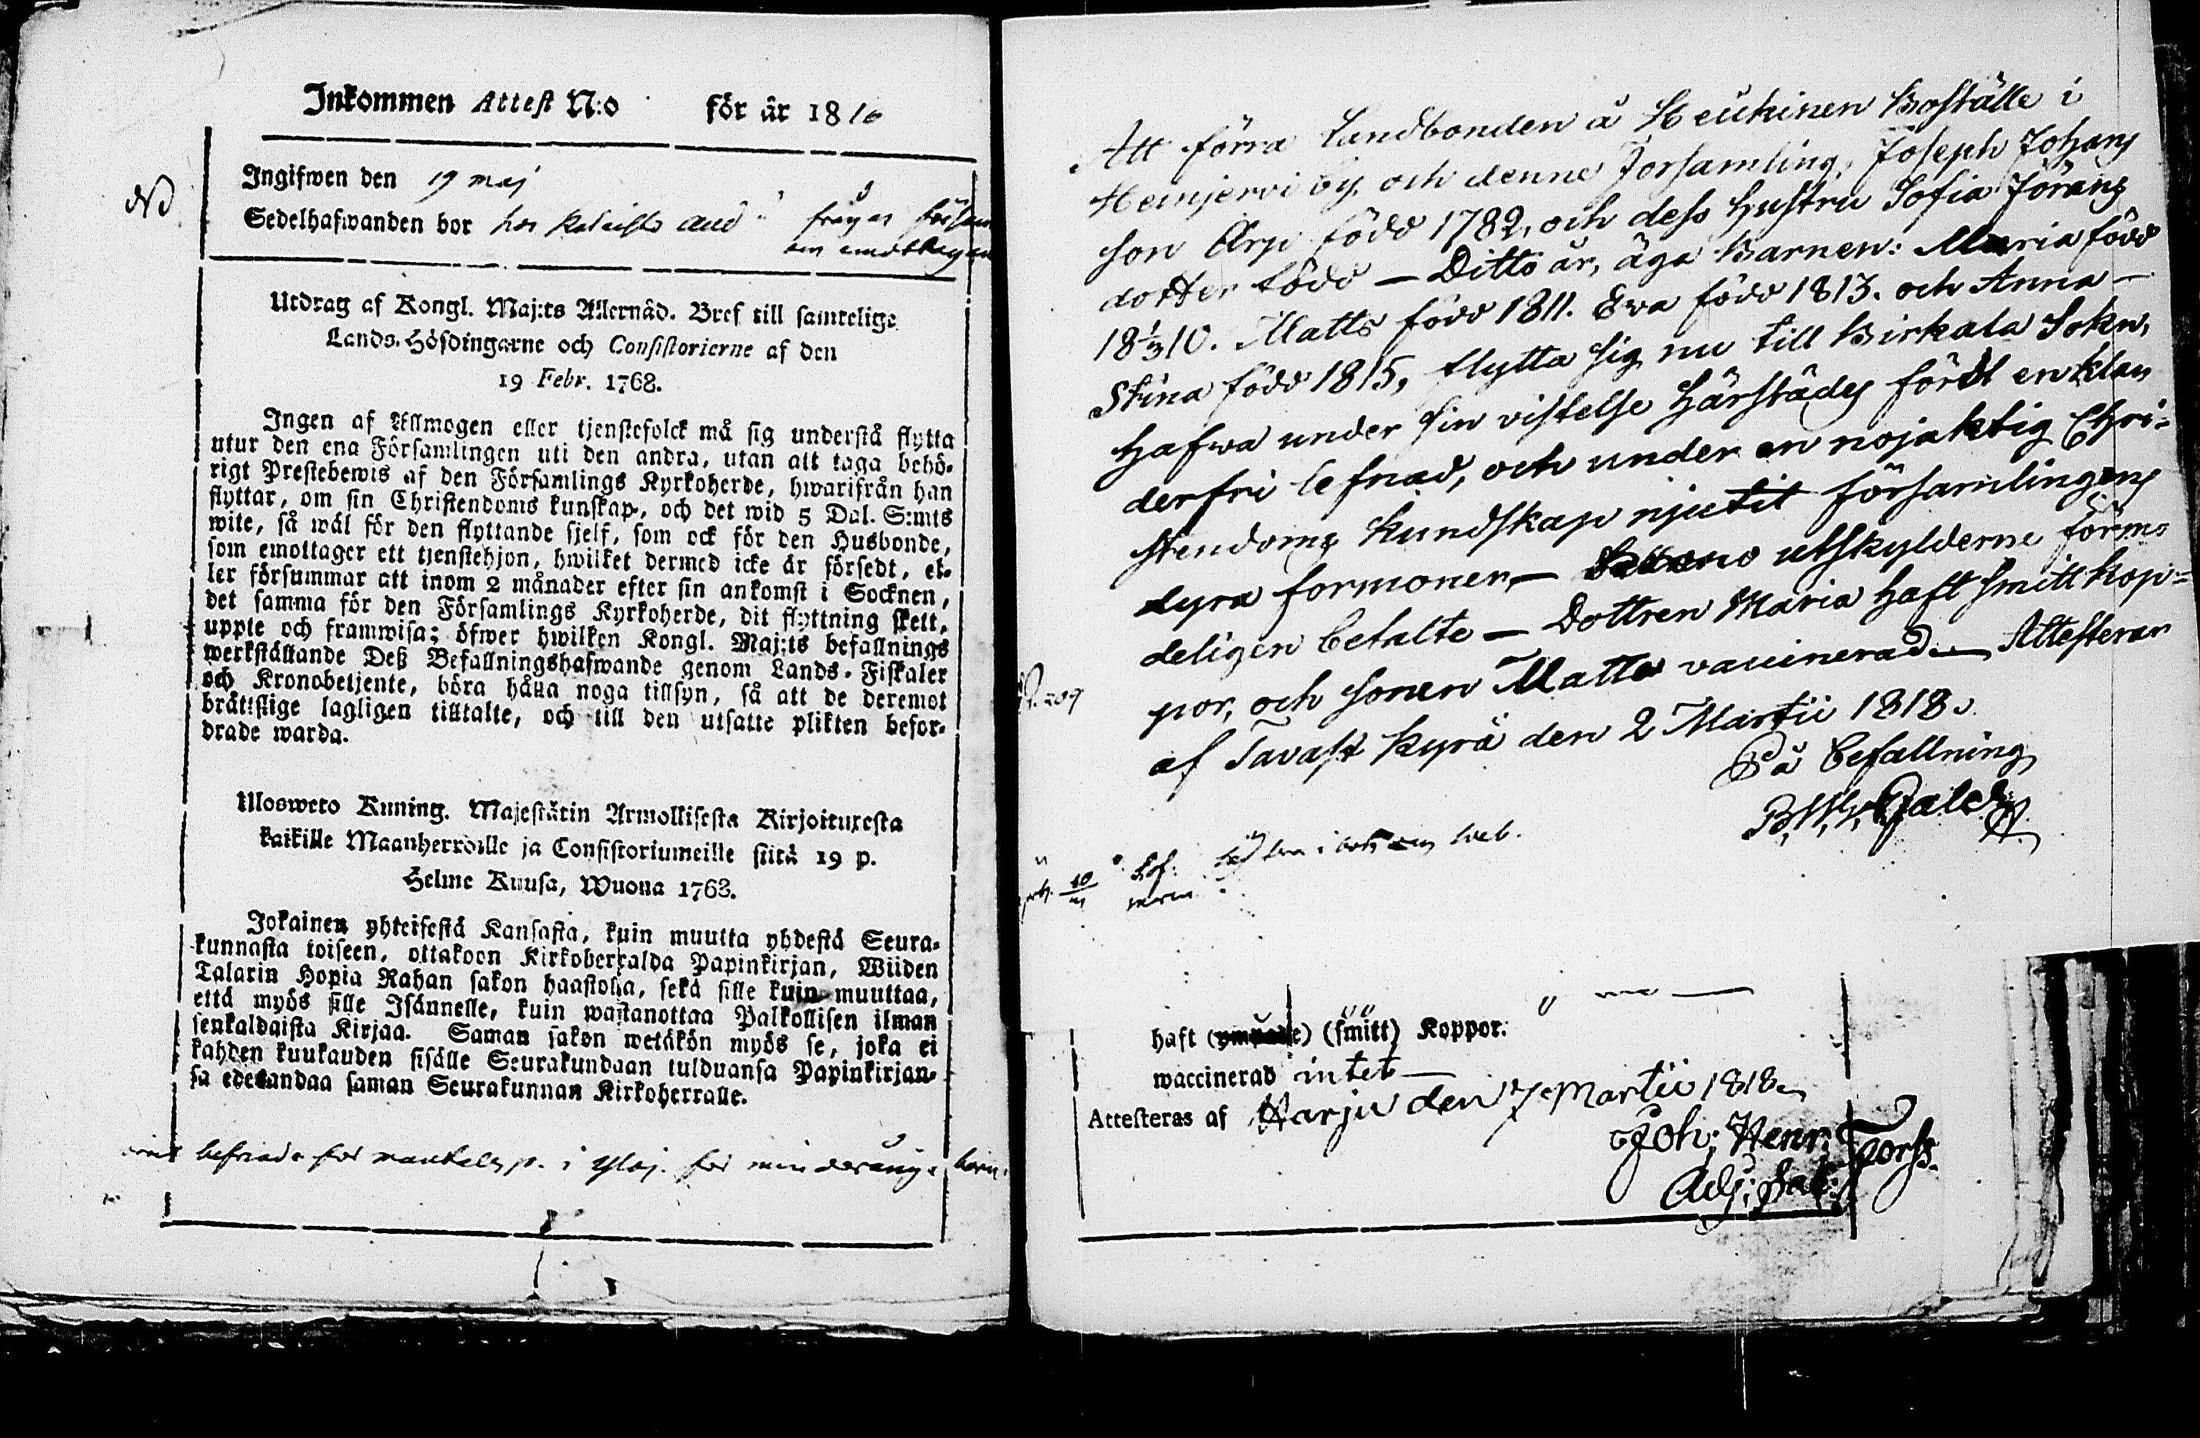 Inkommen Attest N:o för år 1816
Ingifwen den 19 maj
Sedelhafwanden bor hos
Utdrag af Kongl. Maj:ts Allernåd. Bref till samtelige
Lands-Höfdingarne och Consistorierne af den
19 Febr. 1768.
Ingen af Allmogen eller tjenstefolck må sig understå flytta
utur den ena Församlingen uti den andra, utan att taga behö-
rigt Prestebewis af den Församlings Kyrkoherde, hwarifrån han
flyttar, om sin Christendoms kunskap, och det wid 5 Dal. S:mts
wite, så wäl för den flyttande sjelf, som ock för den Husbonde,
som emottager ett tjenstehjon, hwilket dermed icke är försedt, el-
ler försummar att inom 2 månader efter sin ankomst i Socknen,
det samma för den Församlings Kyrkoherde, dit flyttning skett,
uppte och framwisa; öfwer hwilken Kongl. Maj:ts befallnings
werkställande Deß Befallningshafwande genom Lands-Fiskaler
och Kronobetjente, böra hålla noga tillsyn, så att de deremot
brätslige lagligen tilltalte, och till den utsatte plikten befor-
drade warda.
Ulosweto Kuning. Majestätin Armollisesta Kirjoituxesta
kaikille Maanherroille ja Consistoriumeille siitä 19 p.
Helme Kuusa, Wuona 1763.
Jokainen yhteisestä Kansasta, kuin muutta yhdestä Seura-
kunnasta toiseen, ottakoon Kirkoherralda Papinkirjan, Wiiden
Talarin Hopia Rahan sakon haastolla, sekä sille kuin muuttaa,
että myös sille Isännelle, kuin wastanottaa Palkollisen ilman
senkaldaista Kirjaa. Saman sakon wetäkön myös se, joka ei
kahden kuukauden sisälle Seurakundaan tulduansa Papinkirjan-
sa edesandaa saman Seurakunnan Kirkoherralle.
befriade för i för minderårige barn
Att förra Landbonden å Heükinen Boställe i
Heinjervi by, och denne Forsamling, Joseph Johans
son Arp född 1782, och dess Hustru Sofia Jörans
dotter född — Ditto år, äga Barnen: Maria född
18 1/3 10. Matts född 1811. Ewa född 1813. och Anna —
Stina född 1815, flytta sig nu till Birkala Sokn,
Hafwa under sin vistelse Härstädes fördt en klan
derfri lefnad, och under en nojaktig Chri=
stendoms kundskap njutit församlingens
dyra formoner, — utskylderne förmo
deligen betalte — Dottren Maria haft smitt kop=
por, och sonen Matts vaccinerad — Attesterar
af Tavast Kyrö den 2 Martii 1818.
På befallning
haft (ympade) (smitt) Koppor.
waccinerad intet —
Attesteras af Harju den 7 Martii 1818
Joh: Henr: Forss.
Adj: Sac: